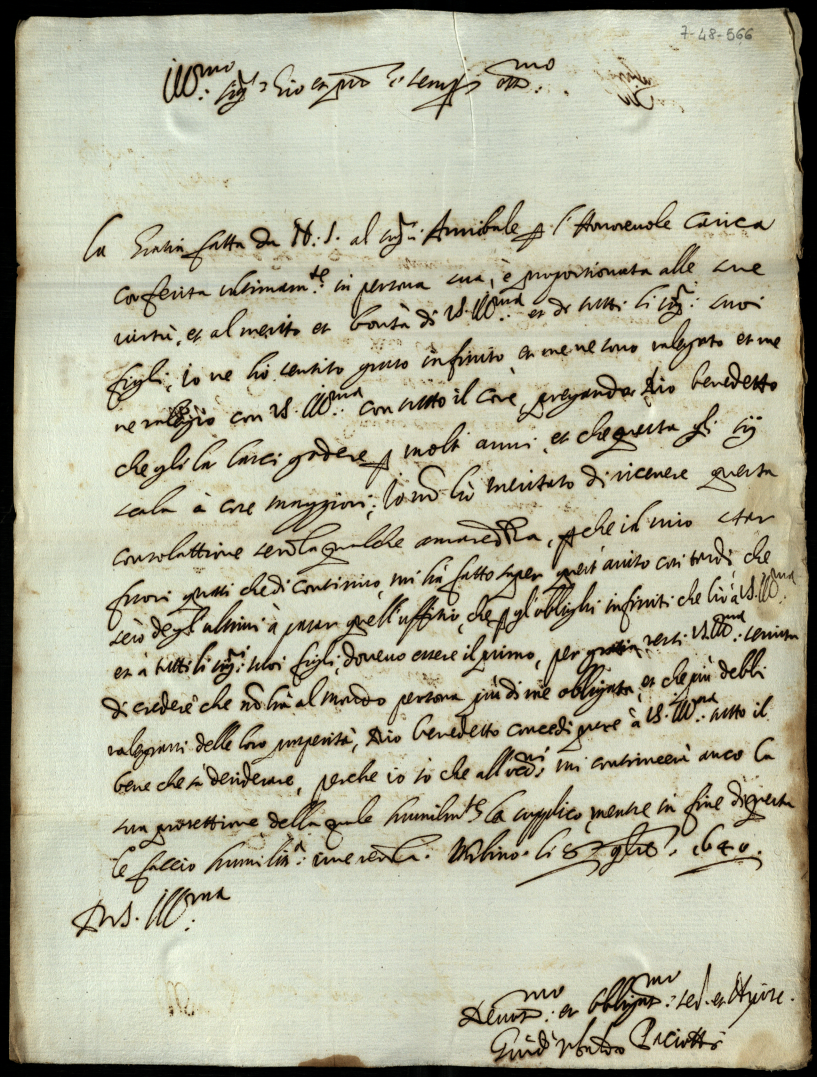 7-48-566
Ill.mo sig.r Zio et pron. sempre oss.mo
La gratia fatta da N. S. al sig.r Annibale p l'honorevole carica
conferita ultimam.te in persona sua, è proportionata alle sue
virtù, et al merito et bontà di V.S. Ill.ma et de tutti li sig.ri suoi
figli, io ne hò sentito gusto infinito et me ne sono ralegrato et me
ne ralegro con V.S. Ill.ma con tutto il core, pregando Dio benedetto
che gli la lasci godere p molti anni, et che questa gli sij
scala à cose maggiori; Io nõ hò meritato di ricevere questa
consolattione senza qualche amaredza, p che il mio star
fuori quasi che di continuo, mi hà fatto saper quest'aviso così tardi, che
serò degl'ultimi à passar quell'uffitio, che p gl'oblighi infiniti che hò à V.S. Ill.ma
et à tutti li sig.ri suoi figli, dovevo essere il primo, per gratia resti V.S. Ill.ma servita
di credere che nõ hà al mondo persona più di me obligata, et che più debbi
ralegrarsi delle loro prosperità, Dio benedetto concedi pure à V.S. Ill.ma tutto il
bene che sà desiderare, perche io sò che all' mi continuerà anco la
sua protettione della quale humilm.te la supplico, mentre in fine di questa
le faccio humiliss.a riverenza. Urbino li 8 1640.
D V.S. Ill.ma
Devot.mo et obligat.mo ser. et Nipote
Guid'Ubaldo Paciotti